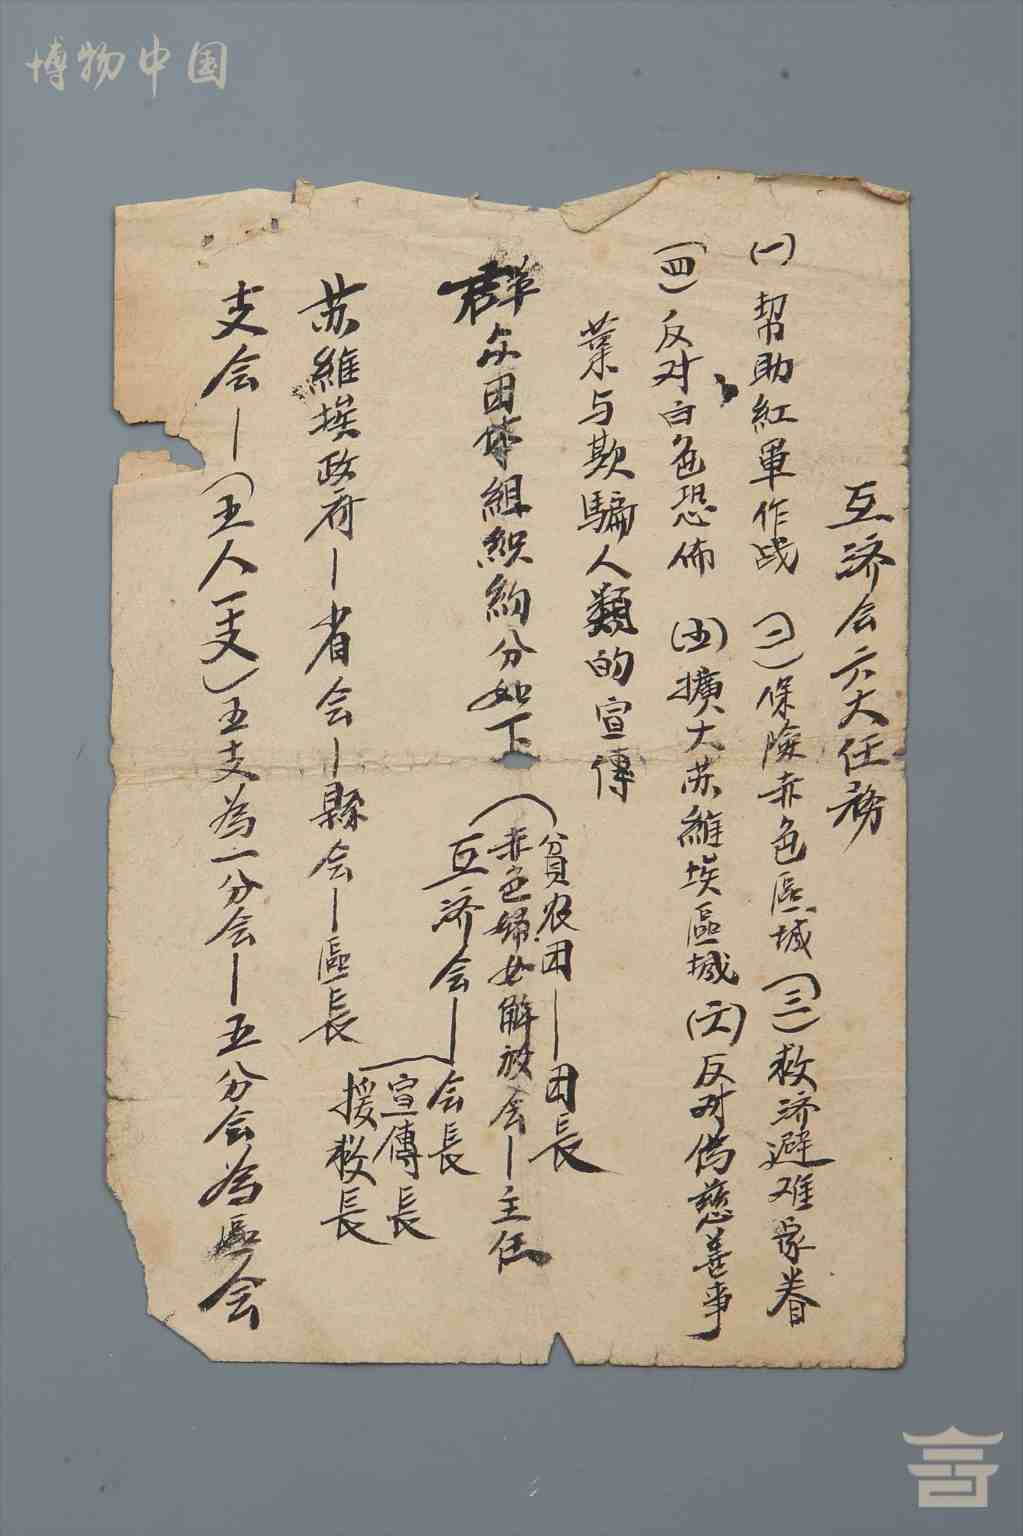 博物中国
互济会六大任務
(一)幇助紅軍作战 (二)保險赤色區域 (三)救济避难家眷
(四)反对白色恐佈 (五)擴大苏維埃區域 (六)反对偽慈善事
業与欺騙人類的宣傳
群众团体組织約分如下
貧农团—团長
赤色婦女解放会—主任
互济会—会長
宣傳長
援救長
苏維埃政府—省会—縣会—區長
支会—(五人一支)五支為一分会—五分会為區会